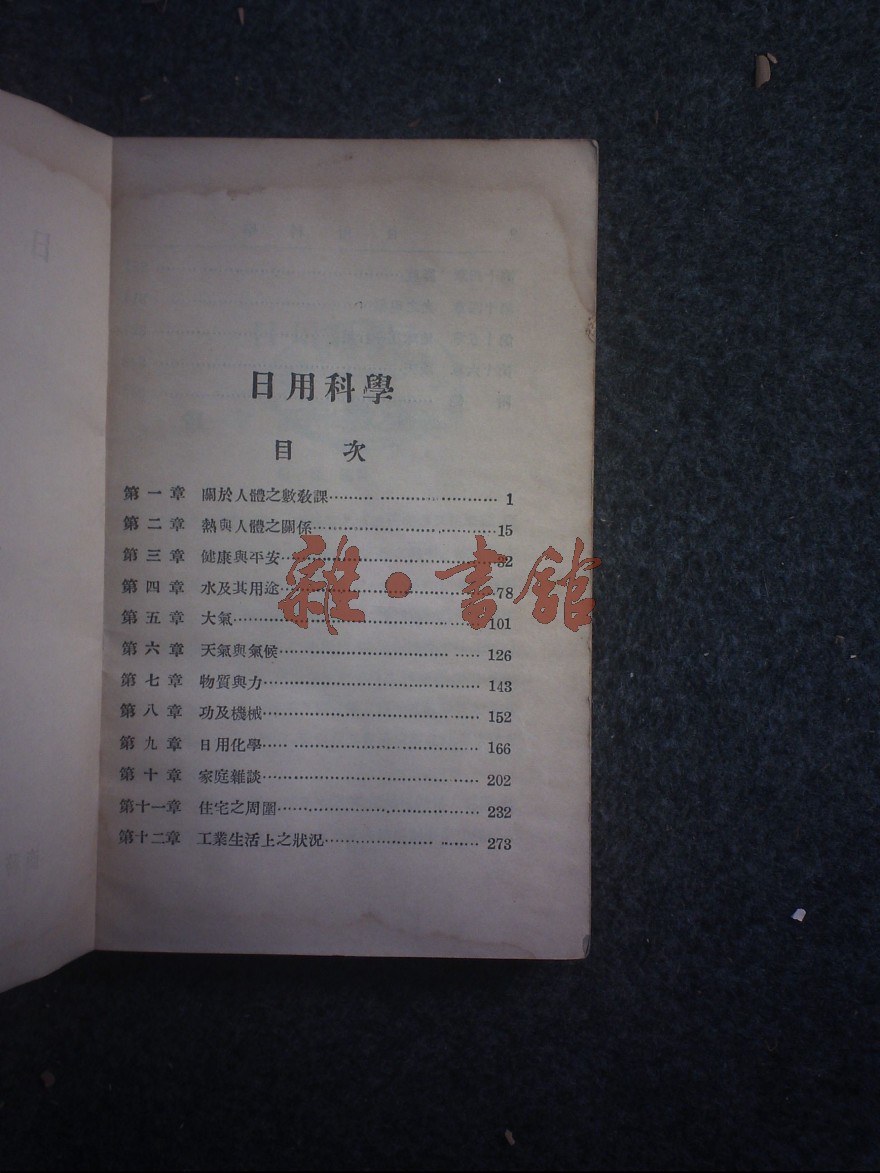 日用科學
目 次
第一章 關於人體之數教課 1
第二章 熱與人體之關係 15
第三章 健康與平安 32
第四章 水及其用途 78
第五章 大氣 101
第六章 天氣與氣候 126
第七章 物質與力 143
第八章 功及機械 152
第九章 日用化學 166
第十章 家庭雜談 202
第十一章 住宅之周圍 232
第十二章 工業生活上之狀况 273
雜·書館
日